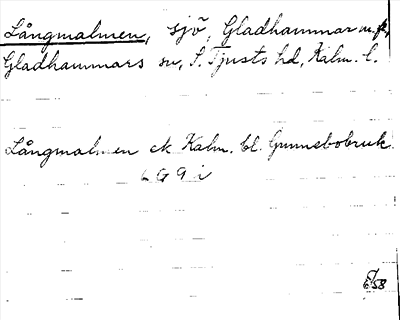 Långmalmen, sjö, Gladhammar m. fl.,
Gladhammars sn, S. Tjusts hd, Kalm. l.
Långmalmen ek Kalm. bl. Gunnebobruk
6 G 9 i
58